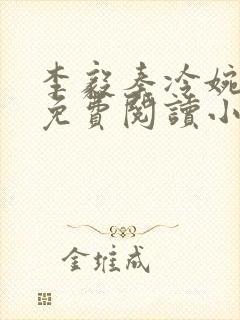 李毅秦冷婉
免費閱讀小
金堆成